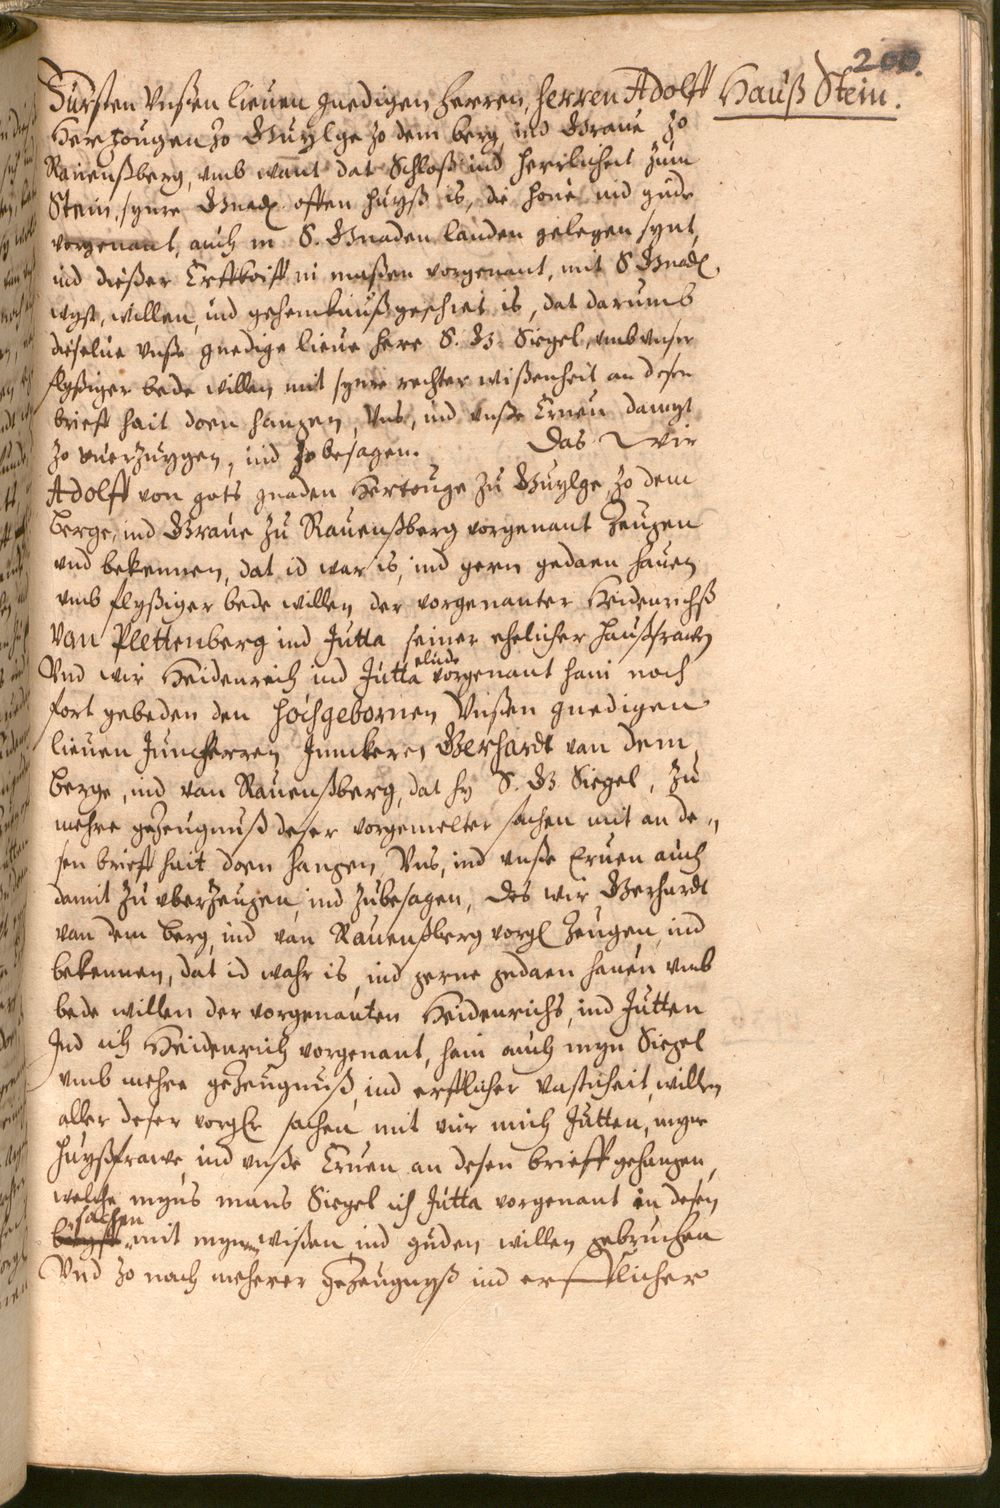 200.
Hauß Stein.
Fürsten Vnßen lieuen gnedigen herren, herren Adolff
Hertzougen zo Guylge zo dem berg, ind Graue zo
Rauenßberg, vmb want dat Schloß ind herrlicheit zum
Stein, syner Gnad. offen huyß is, die houe ind gude
vorgenant, auch in S. Gnaden landen gelegen synt,
ind dießer Erffkoiff in maßen vorgenant, mit S. Gnad.
wyst, willen, ind gehenknuß geschiet is, dat darumb
dieselue vnße gnedige lieue here S. G. Siegel, vmb vnser
flyßiger bede willen mit syner rechter wißenheit an desen
brieff hait doen hangen, vns, ind vnße Eruen damyt
zo vuerzuygen, ind zo besagen. Das Wir
Adolff von gots gnaden Hertouge zu Guylge, zo dem
Berge, ind Graue zu Rauenßberg vorgenant Zeugen
vnd bekennen, dat id war is, ind gern gedaen hauen
vmb flyßiger bede willen der vorgenanter Heidenrichß
Van Plettenberg ind Jutta seiner ehelicher haußfrawen
Vnd wir Heidenreich ind Jutta elude vorgenant hain noch
fort gebeden den hochgebornen Vnßen gnedigen
lieuen Juncherren Junckeren Gerhardt van dem
Berge, ind van Rauenßberg, dat hy S. G. Siegel, zu
mehre gezeugnuß deser vorgemelter sachen mit an de-
sen brieff hait doen hangen, Vns, ind vnße Eruen auch
damit zu vberzeugen, ind zubesagen, Des wir Gerhardt
van dem berg, ind van Rauenßberg vorgl. Zeugen, ind
bekennen, dat id wahr is, ind gerne gedaen hauen vmb
bede willen der vorgenanten Heidenrichs, ind Jutten
Ind ich Heidenrich vorgenant, hain auch myn Siegel
vmb mehre gezeugnuß, ind erfflicher vasticheit willen
aller deser vorglr. sachen mit vur mich Jutten, myne
huyßfrawe, ind vnße Eruen an desen brieff gehangen,
welche myns mans Siegel ich Jutta vorgenant in desen
sachen mit mynen wißen, ind guden willen gebruchen
Vnd zo noch meherer gezeugnyß ind erfflicher